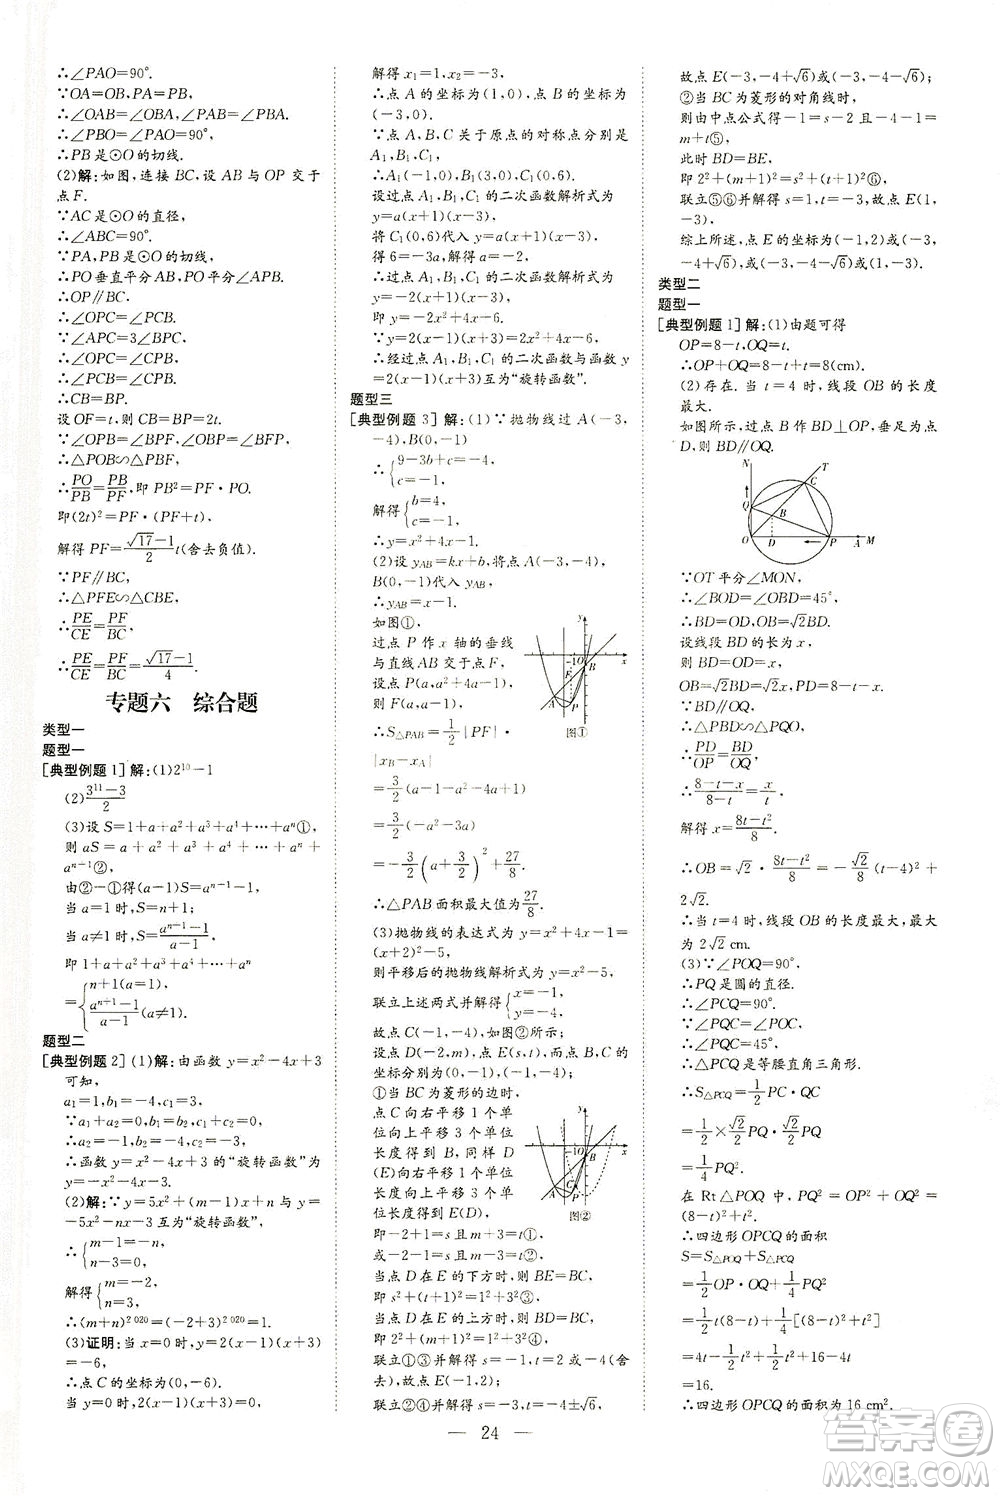 ∴∠PAO=90°.
∵OA=OB,PA=PB,
∴∠OAB=∠OBA,∠PAB=∠PBA.
∴∠PBO=∠PAO=90°.
∴PB是⊙O的切线.
(2)解:如图,连接BC,设AB与OP交于
点F.
∵AC是⊙O的直径,
∴∠ABC=90°.
∵PA,PB是⊙O的切线,
∴PO垂直平分AB.
∴OP∥BC.
∴∠OPC=∠PCB.
∵∠APC=3∠BPC,
∴∠OPC=∠CPB.
∴∠PCB=∠CPB.
∴CB=BP.
设OF=t,则CB=BP=2t.
∵∠OPB=∠BPF,∠PBO=∠BFP,
∴△POB∽△PBF.
∴PO/PB=PB/PF,即PB²=PF·PO.
即(2t)²=PF·(PF+t).
解得PF=(√17-1)/2 t(舍去负值).
∵PF∥BC,
∴△PFE∽△CBE,
∴PE/CE=PF/BC.
∴PE/CE=PF/BC=(√17-1)/4.
专题六 综合题
类型一
题型一
[典型例题1]解:(1)2¹⁰-1
(2)(3¹¹-3)/2
(3)设S=1+a+a²+a³+a⁴+⋯+aⁿ①,
则aS=a+a²+a³+a⁴+⋯+aⁿ+
aⁿ⁺¹②,
由②-①得(a-1)S=aⁿ⁺¹-1
当a=1时,S=n+1;
当a≠1时,S=(aⁿ⁺¹-1)/(a-1),
即1+a+a²+a³+a⁴+⋯+aⁿ
={n+1(a=1),
(aⁿ⁺¹-1)/(a-1)(a≠1).
题型二
[典型例题2](1)解:由函数y=x²-4x+3
可知,
a₁=1,b₁=-4,c₁=3,
∵a₁+a₂=0,b₁=b₂,c₁+c₂=0,
∴a₂=-1,b₂=-4,c₂=-3.
∴函数y=x²-4x+3的“旋转函数”为
y=-x²-4x-3.
(2)解:∵y=5x²+(m-1)x+n与y=
-5x²-nx-3互为“旋转函数”,
∴{m-1=-n,
n-3=0.
解得{m=-2,
n=3,
∴(m+n)²⁰²⁰=(-2+3)²⁰²⁰=1.
(3)证明:当x=0时,y=2(x-1)(x+3)
=-6,
∴点C的坐标为(0,-6).
当y=0时,2(x-1)(x+3)=0,
解得x₁=1,x₂=-3,
∴点A的坐标为(1,0),点B的坐标为
(-3,0).
∵点A,B,C关于原点的对称点分别是
A₁,B₁,C₁,
∴A₁(-1,0),B₁(3,0),C₁(0,6).
设过点A₁,B₁,C₁的二次函数解析式为
y=a(x+1)(x-3),
将C₁(0,6)代入y=a(x+1)(x-3),
得6=-3a,解得a=-2,
∴过点A₁,B₁,C₁的二次函数解析式为
y=-2(x+1)(x-3),
即y=-2x²+4x+6.
∵y=2(x-1)(x+3)=2x²+4x-6,
∴经过点A₁,B₁,C₁的二次函数与函数y
=2(x-1)(x+3)互为“旋转函数”.
题型三
[典型例题3]解:(1)∵抛物线过A(-3,
-4),B(0,-1)
∴{9-3b+c=-4,
c=-1.
解得{b=4,
c=-1,
∴y=x²+4x-1.
(2)设y_AB=kx+b,将A(-3,-4),
B(0,-1)代入,
∴y_AB=x-1.
如图①,
过点P作x轴的垂线
与线段AB交于点F,
设点P(a,a²+4a-1),
则F(a,a-1),
∴S△PAB=1/2|PF|·
|x_B-x_A|
=3/2(a-1-a²-4a+1)
=3/2(-a²-3a)
=-3/2(a+3/2)²+27/8
∴△PAB面积最大值为27/8.
(3)抛物线的表达式为y=x²+4x-1=
(x+2)²-5,
则平移后的抛物线解析式为y=x²-5,
联立上述两式并解得{x=-1,
y=-4.
故点C(-1,-4)如图②所示;
设点D(-2,m),点E(s,t),而点B,C的
坐标分别为(0,-1),(-1,-4),
①当BC为菱形的边时,
点C向右平移1个单
位向上平移3个单位
长度得到B,同样D
(E)向右平移1个单
位向上平移3个单位
长度得到E(D),
即-2+1=s且m+3=t③,
或-2-1=s且m-3=t④,
当点D在E的下方时,则BE=BC,
即s²+(t+1)²=1²+3²③,
当点D在E的上方时,则BD=BC,
即2²+(m+1)²=1²+3²④,
联立①③并解得s=-1,t=-4(舍
去),故点E(-1,2);
联立②④并解得s=-3,t=-4±√6,
O
x
y
-1
A
B
F
P
图①
图②
故点E(-3,-4+√6)或(-3,-4-√6);
②当BC为菱形的对角线时,
则由中点公式得-1=s-2且-4-1=
m+t⑤,
此时BD=BE,
即2²+(m+1)²=s²+(t+1)²⑥,
联立⑤⑥并解得s=1,t=-3,故点E(1,
-3).
综上所述,点E的坐标为(-1,2)或(-3,
-4+√6)或(-3,-4-√6)或(1,-3).
类型二
题型一
[典型例题1]解:(1)由题可得
OP=8-t,OQ=t,
∴OP+OQ=8-t+t=8(cm).
(2)存在.当t=4时,线段OB的长度
最大.
如图所示,过点B作BD⊥OP,垂足为点
D,则BD∥OQ.
N
T
C
Q
B
O
D
P
A
M
∵OT平分∠MON,
∴∠BOD=∠OBD=45°,
∴BD=OD,OB=√2BD.
设线段BD的长为x,
则BD=OD=x,
OB=√2BD=√2x,PD=8-t-x,
∵BD∥OQ,
∴△PBD∽△PQO,
∴PD/OP=BD/OQ,
∴(8-t-x)/(8-t)=x/t,
解得x=(8t-t²)/8.
∴OB=√2·(8t-t²)/8=-√2/8(t-4)²+
2√2.
∴当t=4时,线段OB的长度最大,最大
为2√2 cm.
(3)∵∠POQ=90°,
∴PQ是圆的直径.
∴∠PCQ=90°.
∵∠PQC=∠POC=45°,
∴△PCQ是等腰直角三角形.
∴S△PCQ=1/2PC·QC
=1/2×√2/2PQ·√2/2PQ
=1/4PQ².
在Rt△POQ中,PQ²=OP²+OQ²=
(8-t)²+t².
∴四边形OPCQ的面积
S=S△POQ+S△PCQ
=1/2OP·OQ+1/4PQ²
=1/2t(8-t)+1/4[(8-t)²+t²]
=4t-1/2t²+1/2t²+16-4t
=16.
∴四边形OPCQ的面积为16 cm².
24
答案圈
MXQE.COM